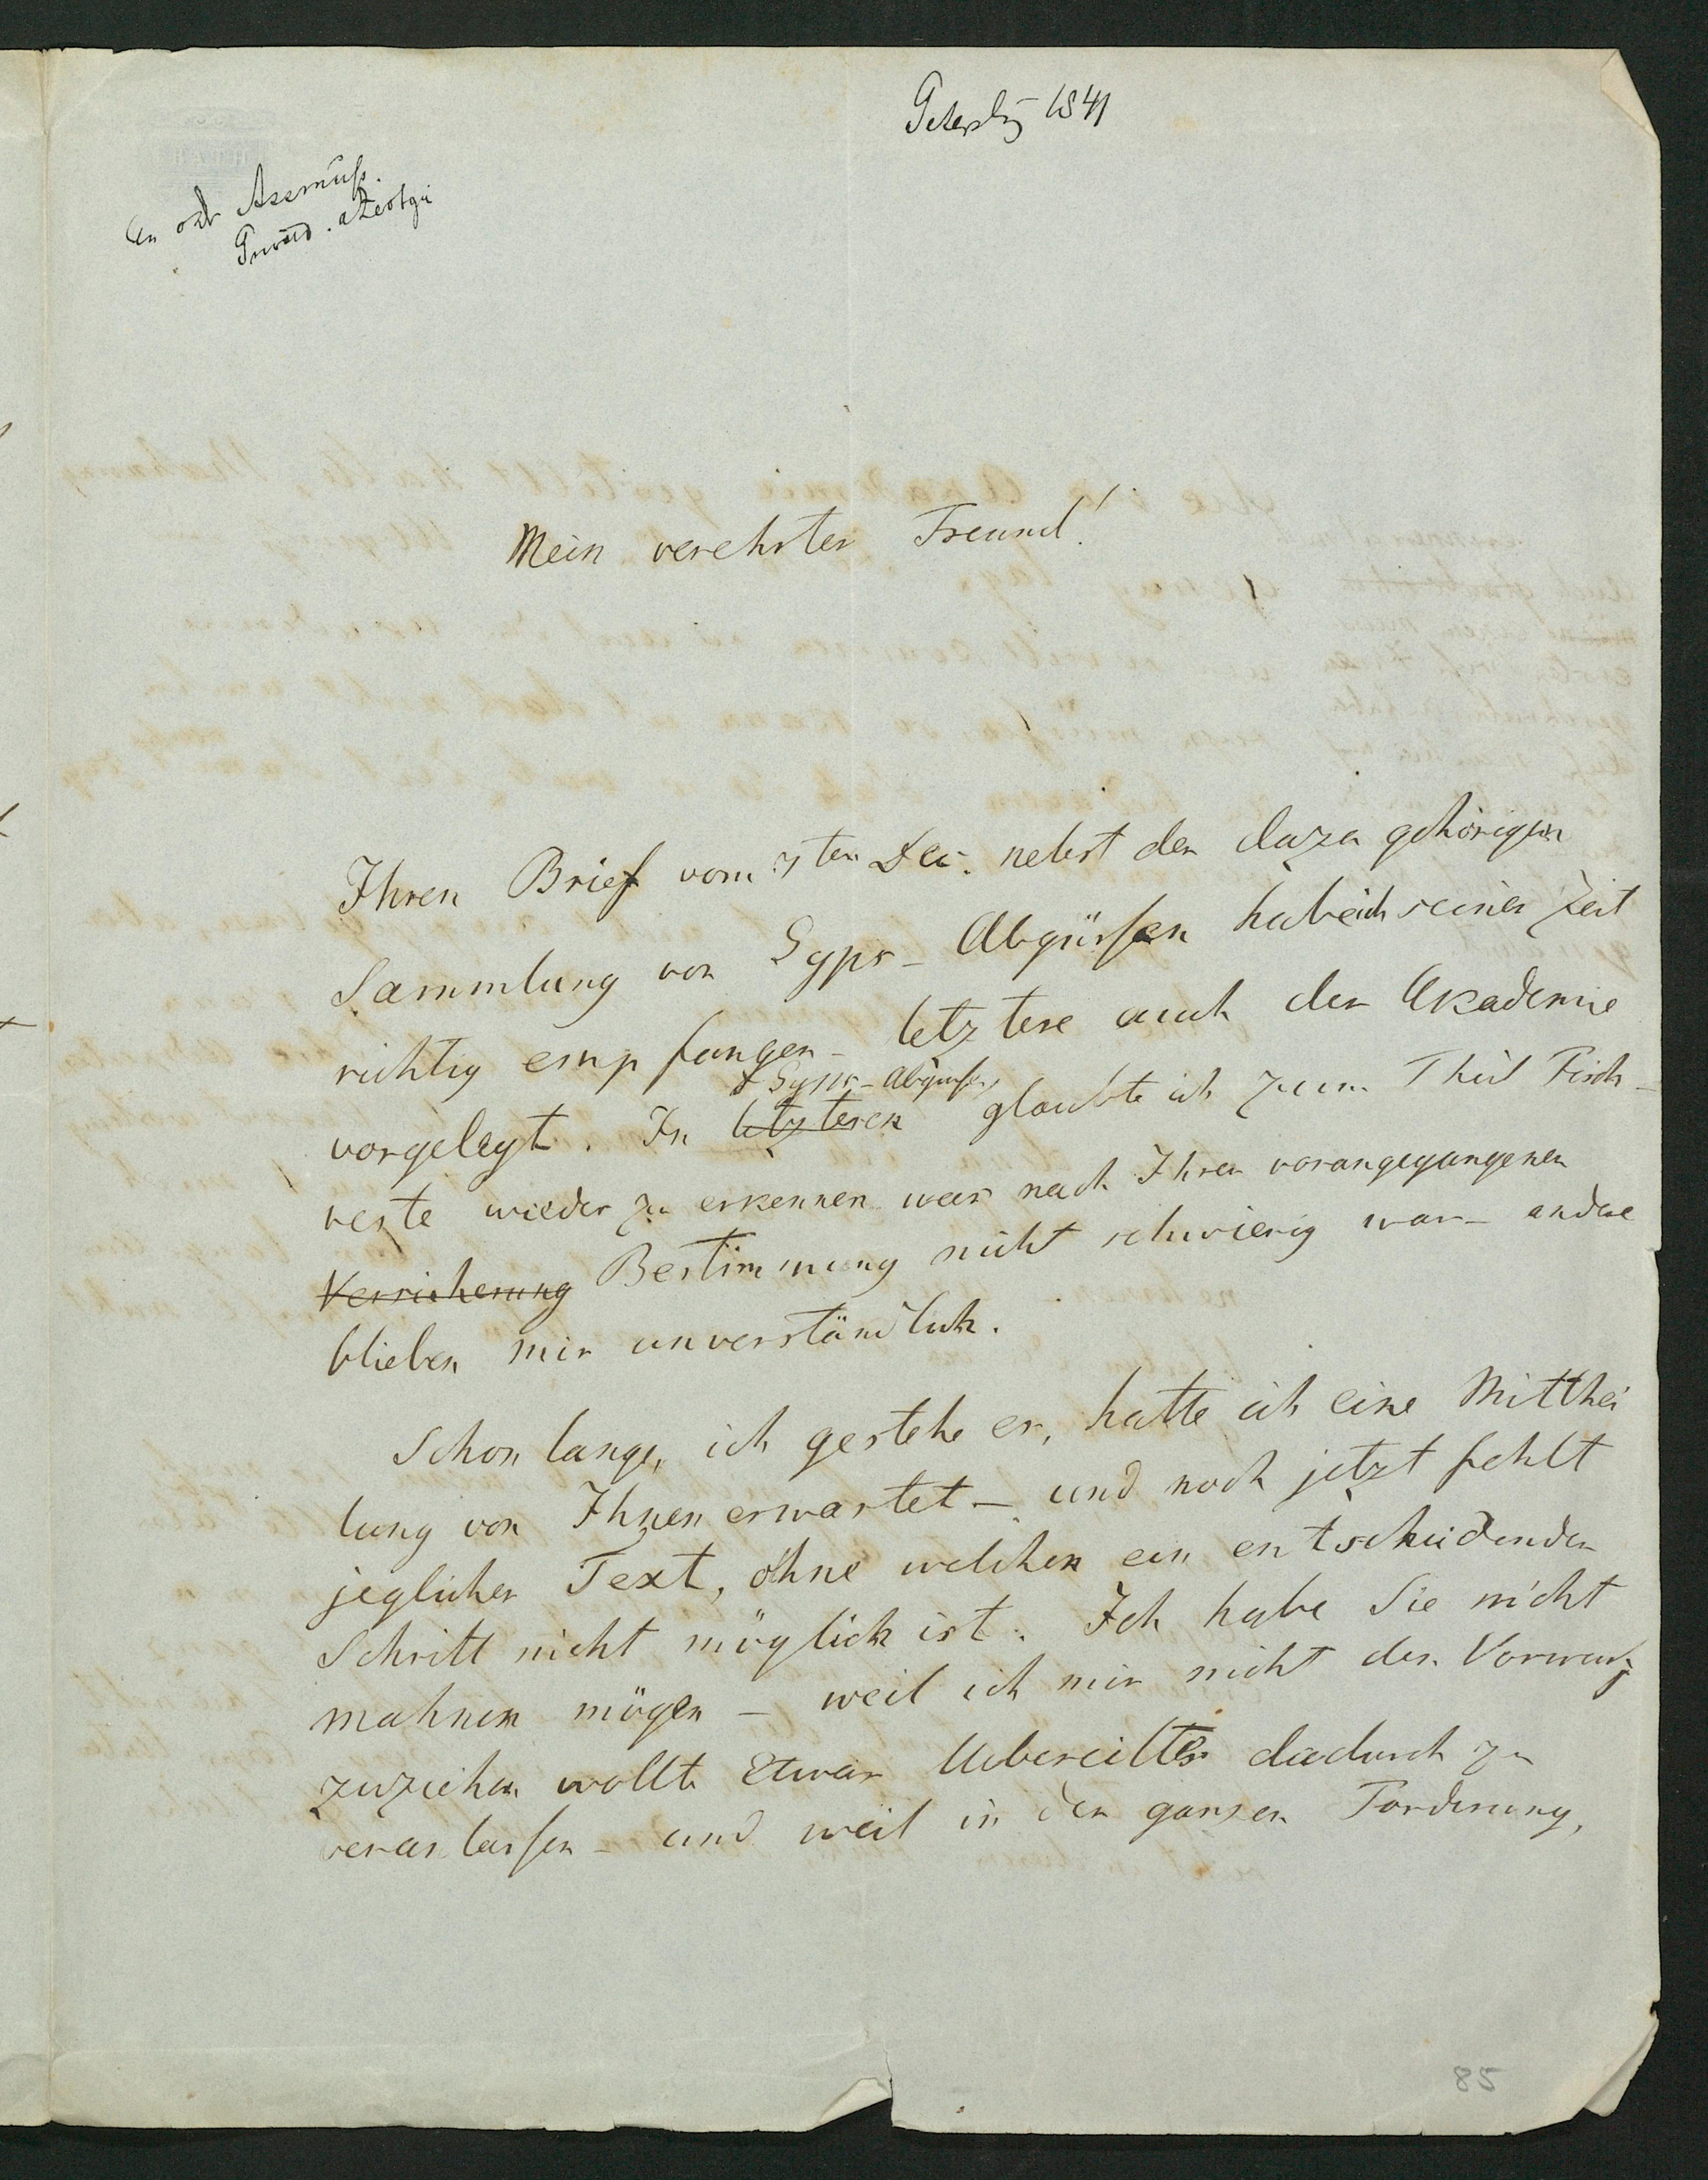 Petersbg 1841
an den Assmuss
Mein verehrter Freund!
Ihren Brief vom 7ten Dec. nebst der dazu gehörigen
Sammlung von Gyps-Abgüssen habe ich seiner Zeit
richtig empfangen - letztere auch der Akademie
Gyps-Abgüssen
vorgelegt. In letzteren glaubte ich zum Theil Fisch-
reste wieder zu erkennen was nach Ihrer vorangegangenen
Versicherung Bestimmung nicht schwierig war - andere
blieben mir unverständlich.
Schon lange, ich gestehe es, hatte ich eine Mitthei
lung von Ihnen erwartet - und noch jetzt fehlt
jeglicher Text, ohne welchen ein entscheidender
Schritt nicht möglich ist. Ich habe Sie nicht
mahnen mögen - weil ich mir nicht den Vorwurf
zuziehen wollte Etwas Uebereiltes dadurch zu
veranlassen - und weil in der ganzen Forderung,
85